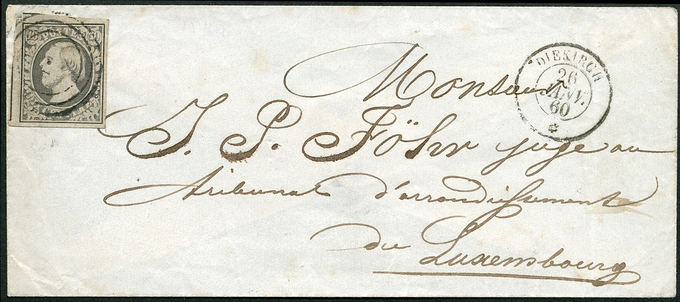 DIEKIRCH
26
JANV.
60
Monsieur
J. P. Föhr juge au
tribunal d'arrondissement
du Luxembourg